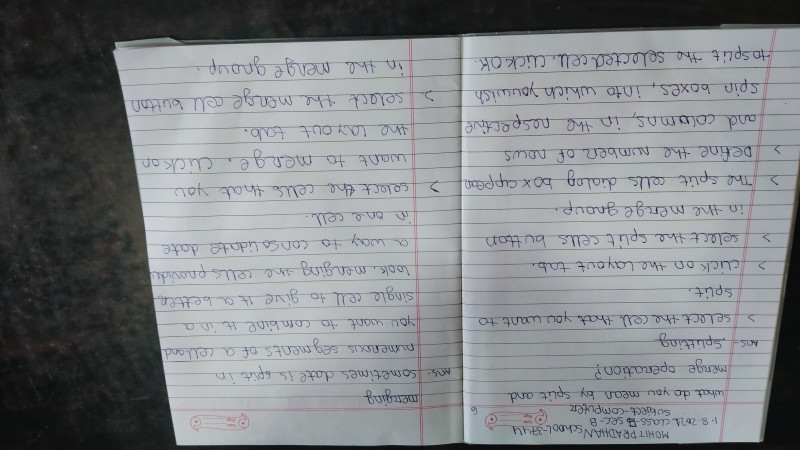 MOHIT PRADHAN SCHOOL-3744
1.8.2021 CLASS- SEC-B
SUBJECT-COMPUTER
6
what do you mean by split and
merge operation?
Ans- Splitting
> select the cell that you want to
split.
> click on the layout tab.
> select the split cells button
in the merge group.
> The split cells dialog box appear
> Define the number of rows
and columns, in the respective
spin boxes, into which you wish
to split the selected cell. click OK.
merging
Ans- sometimes date is split in
numerious segments of a cell and
you want to combine it in a
single cell to give it a better
look. merging the cells provide
a way to consolidate date
in one cell.
> select the cells that you
want to merge. click on
the layout tab.
> select the merge cell button
in the merge group.